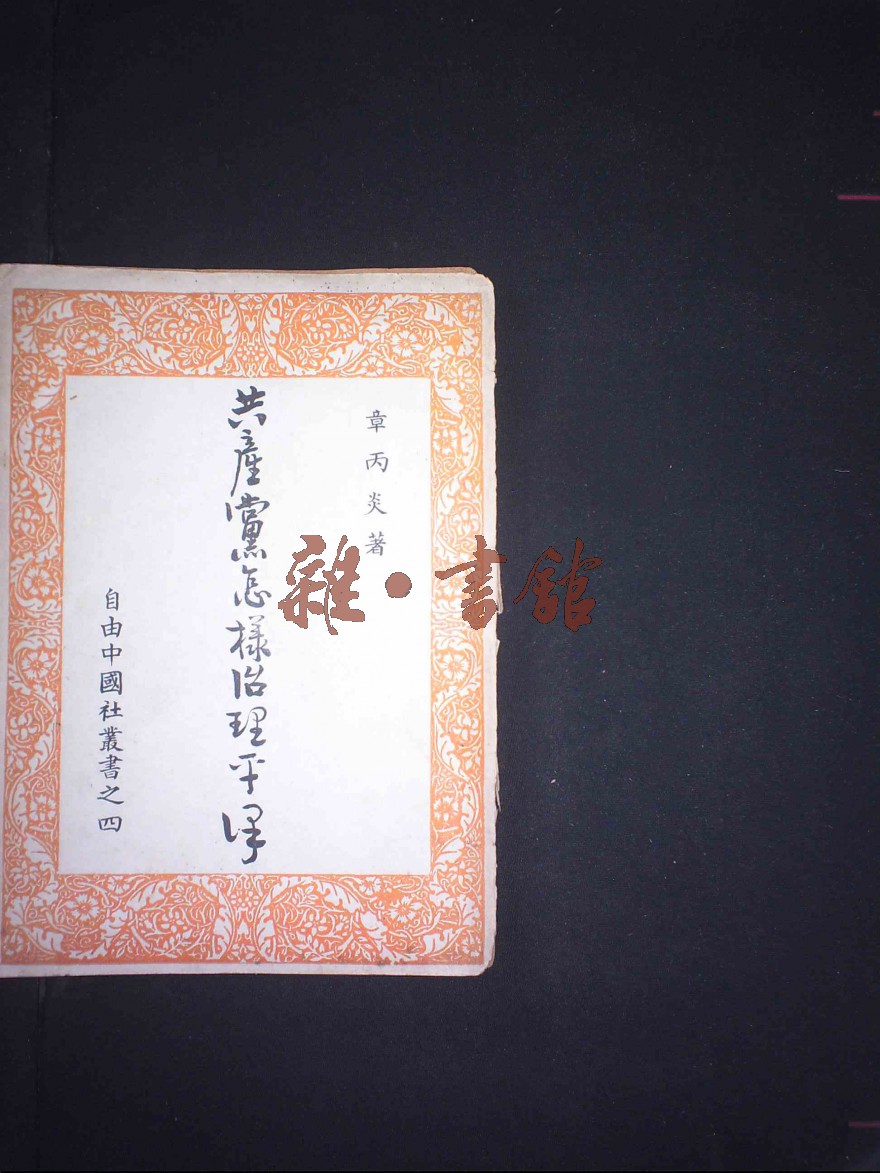 章丙炎著
共產黨怎樣治理平津
自由中國社叢書之四
雜·書館